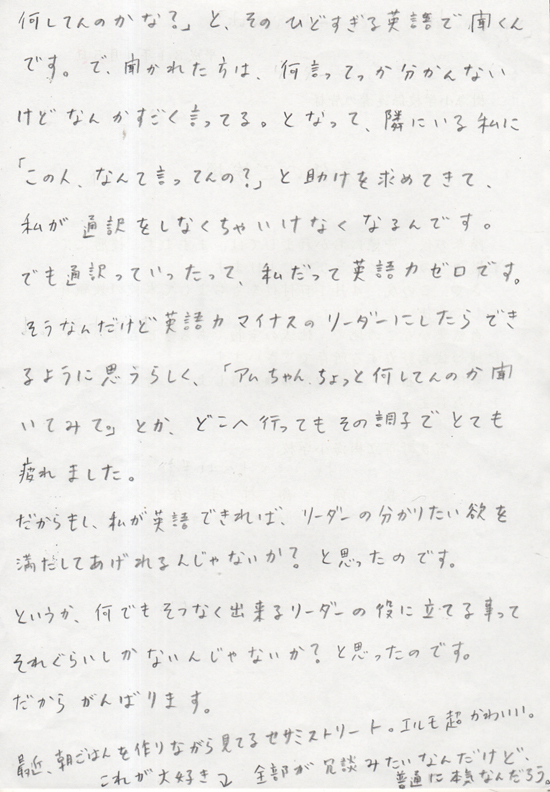 何してんのかな?」と、その ひどすぎる英語で 聞くん
です。で、聞かれた方は、何言ってっか分かんない
けど なんか すごく 言ってる。となって、隣にいる 私に
「この人、なんて言ってんの?」と 助けを求めてきて、
私が 通訳をしなくちゃいけなくなるんです。
でも通訳っていったって、私だって英語力ゼロです。
そうなんだけど英語力マイナスのリーダーにしたら でき
るように思うらしく、「アムちゃん、ちょっと何してんのか聞
いてみて。」とか、どこへ行ってもその調子で とても
疲れました。
だからもし、私が英語できれば、リーダーの分かりたい欲を
満だしてあげれるんじゃないか? と思ったのです。
というか、何でもそつなく出来るリーダーの役に立てる事って
それぐらいしかないんじゃないか?と思ったのです。
だから がんばります。
最近、朝ごはんを作りながら見てるセサミストリート。エルモ超かわいい。
これが大好き 全部が 冗談みたいなんだけど、
普通に本気なんだろう。